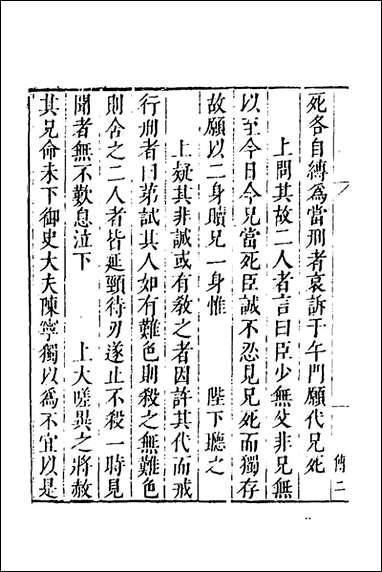 死各自縛為當刑者哀訴于午門願代兄死
上問其故二人者言曰臣少無父非兄無
以至今日今兄當死臣誠不忍見兄死而獨存
故願以二身贖兄一身惟 陛下聽之
上疑其非誠或有教之者因許其代而戒
行刑者曰第試其人如有難色則殺之無難色
則舍之二人者皆延頸待刃遂止不殺一時見
聞者無不歎息泣下 上大嗟異之將赦
其兄命未下御史大夫陳寧獨以為不宜以是
傳二